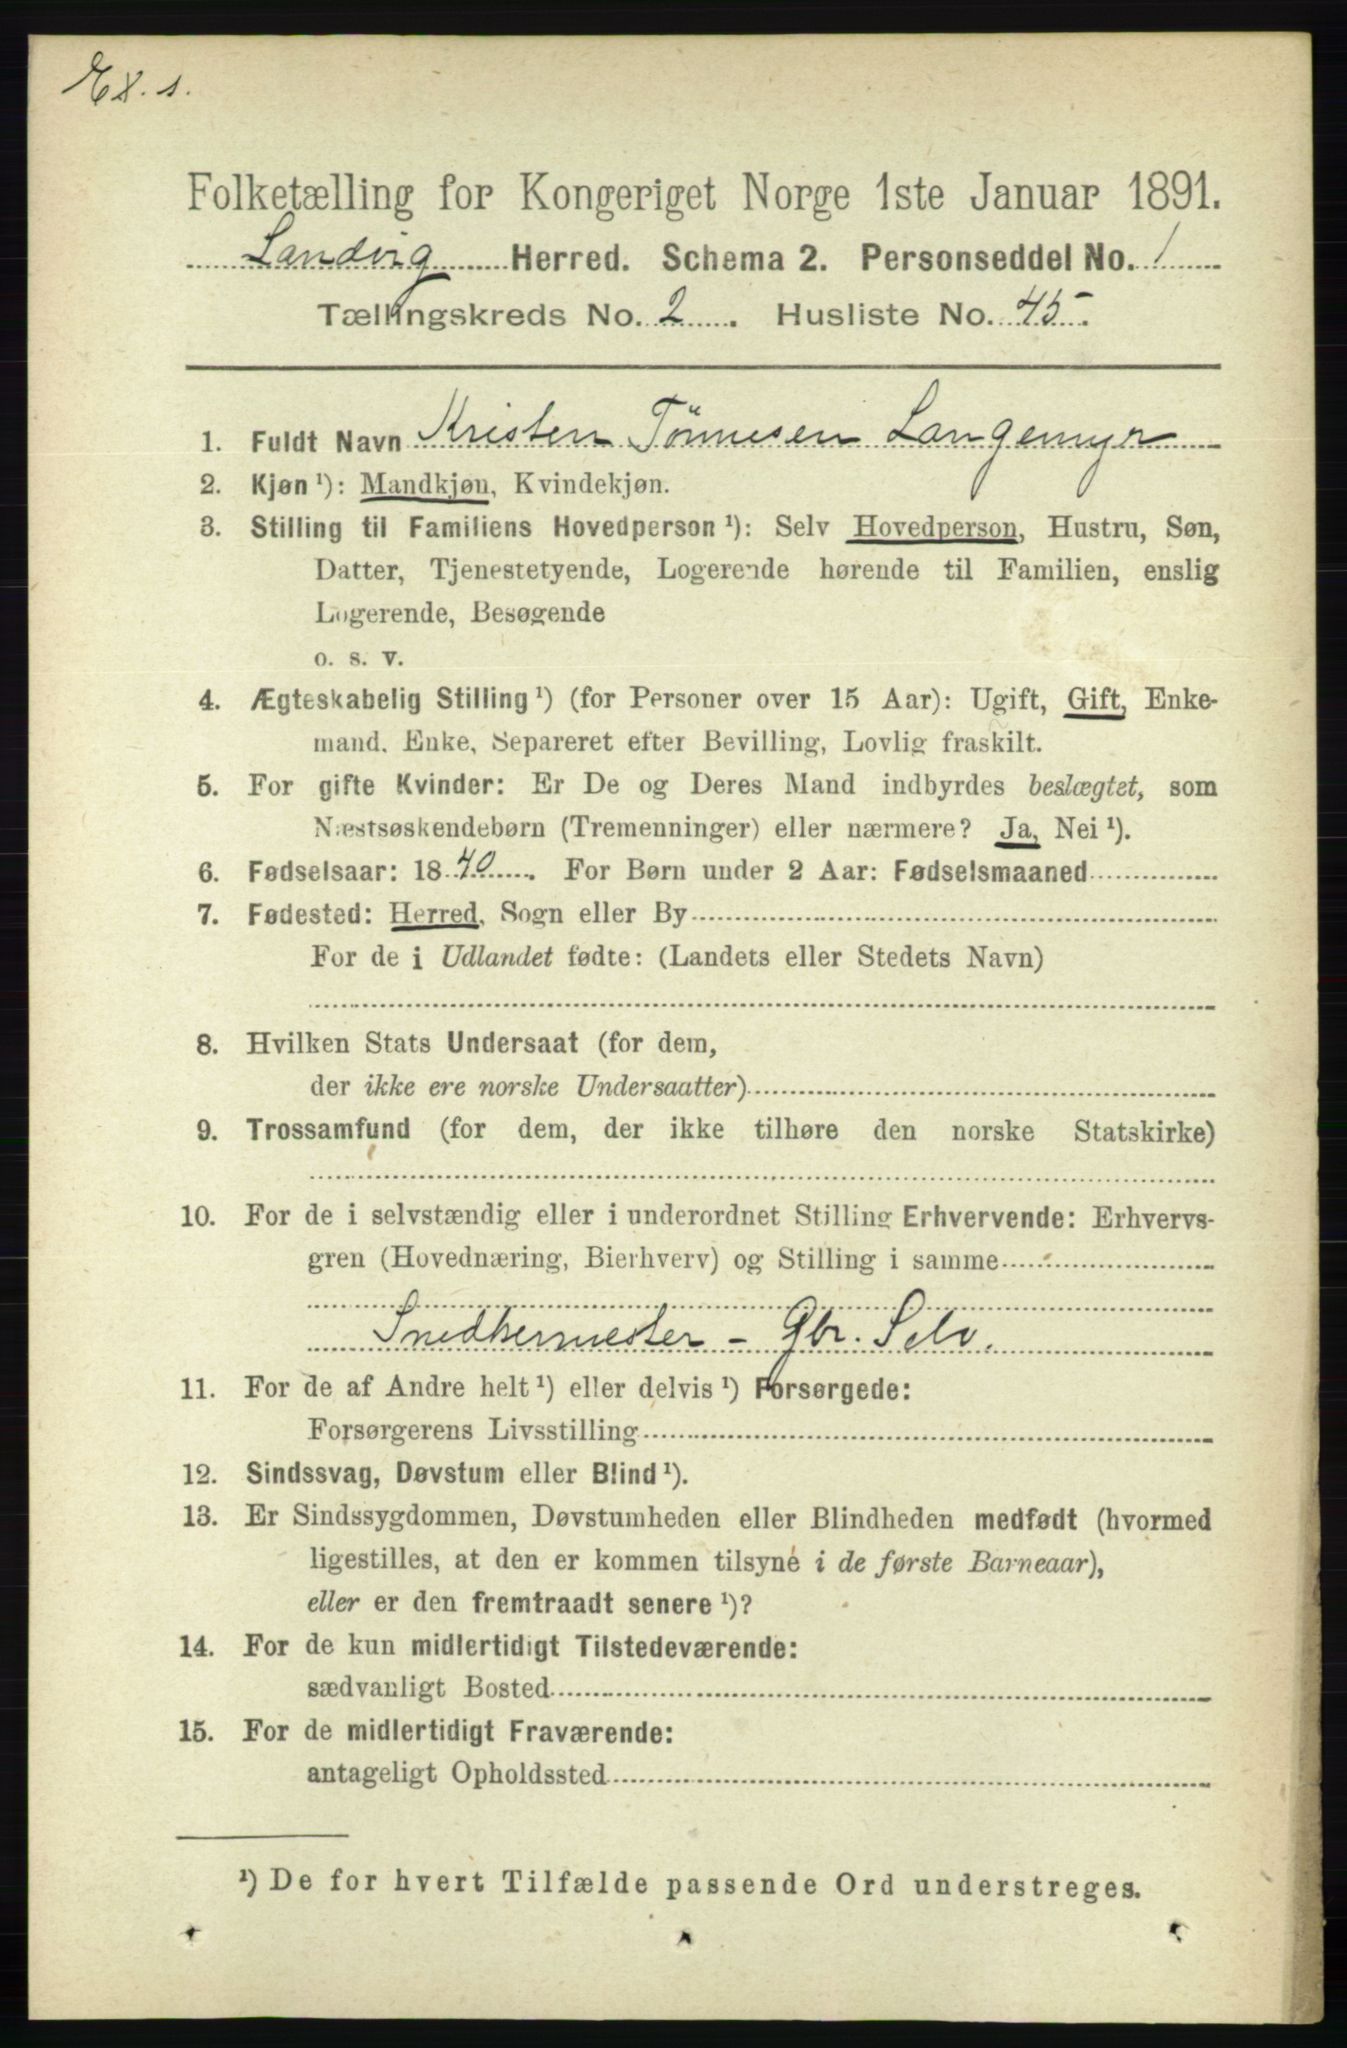 Ex. s.
Folketælling for Kongeriget Norge 1ste Januar 1891.
Landvig Herred. Schema 2. Personseddel No. 1
Tællingskreds No. 2. Husliste No. 45.
1. Fuldt Navn Kristen Tönnesen Langemyr
2. Kjøn ¹): Mandkjøn, Kvindekjøn.
3. Stilling til Familiens Hovedperson ¹): Selv Hovedperson, Hustru, Søn,
Datter, Tjenestetyende, Logerende hørende til Familien, enslig
Logerende, Besøgende
o. s. v.
4. Ægteskabelig Stilling ¹) (for Personer over 15 Aar): Ugift, Gift, Enke-
mand, Enke, Separeret efter Bevilling, Lovlig fraskilt.
5. For gifte Kvinder: Er De og Deres Mand indbyrdes beslægtet, som
Næstsøskendebørn (Tremenninger) eller nærmere? Ja, Nei ¹).
6. Fødselsaar: 1840. For Børn under 2 Aar: Fødselsmaaned
7. Fødested: Herred, Sogn eller By
For de i Udlandet fødte: (Landets eller Stedets Navn)
8. Hvilken Stats Undersaat (for dem,
der ikke ere norske Undersaatter)
9. Trossamfund (for dem, der ikke tilhøre den norske Statskirke)
10. For de i selvstændig eller i underordnet Stilling Erhvervende: Erhvervs-
gren (Hovednæring, Bierhverv) og Stilling i samme
Snedkermester - Gbr. Selv.
11. For de af Andre helt ¹) eller delvis ¹) Forsørgede:
Forsørgerens Livsstilling
12. Sindssvag, Døvstum eller Blind ¹).
13. Er Sindssygdommen, Døvstumheden eller Blindheden medfødt (hvormed
ligestilles, at den er kommen tilsyne i de første Barneaar),
eller er den fremtraadt senere ¹)?
14. For de kun midlertidigt Tilstedeværende:
sædvanligt Bosted
15. For de midlertidigt Fraværende:
antageligt Opholdssted
¹) De for hvert Tilfælde passende Ord understreges.